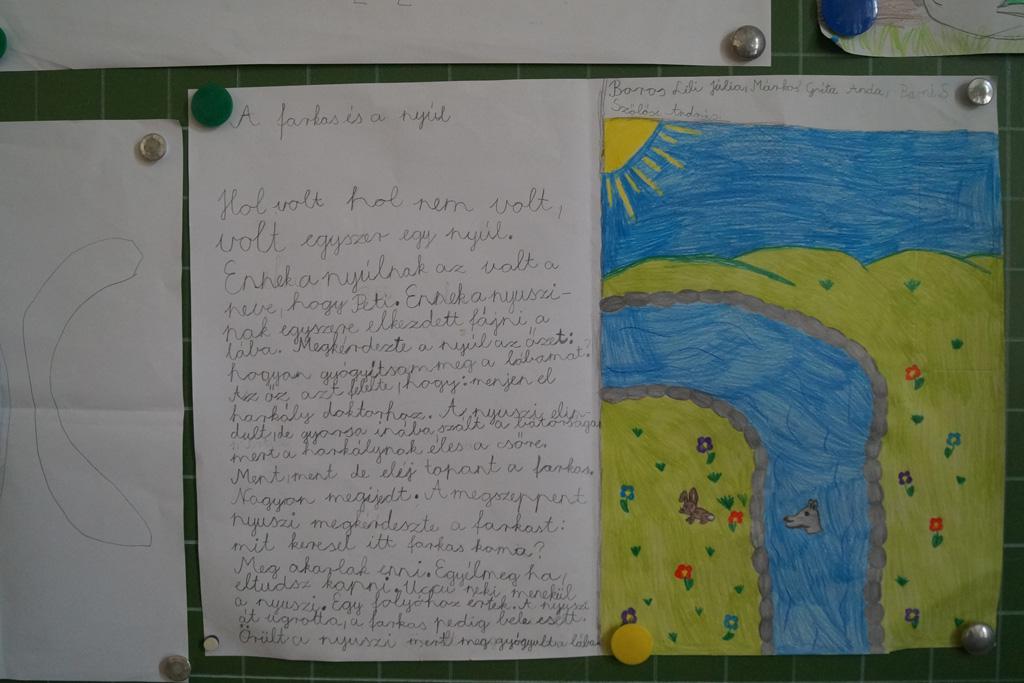 A farkas és a nyúl
Hol volt hol nem volt,
volt egyszer egy nyúl.
Ennek a nyúlnak az volt a
neve, hogy Peti. Ennek a nyuszi-
nak egyszere elkezdett fájni a
lába. Megkérdezte a nyúl az őzet:
hogyan gyógyítsam meg a lábamat?
Az őz azt felelte, hogy: menjen el
harkály doktorhoz. A nyuszi elin-
dult, de gyorsa inába szált a bátorsága
mert a harkálynak éles a csőre.
Ment, ment de eléj topant a farkas.
Nagyon megijedt. A megszeppent
nyuszi megkérdeszte a farkast:
mit keresel itt farkas koma?
Meg akarlak enni. Egyélmeg ha,
eltudsz kapni. Ucpu neki, menekül
a nyuszi. Egy folyóhoz értek. A nyuszi
át ugrotta, a farkas pedig bele esett.
Örült a nyuszi mert meg gyógyult a lába.
Boros Lili Júlia, Márkos Gréta Anda,
Szőlősi András